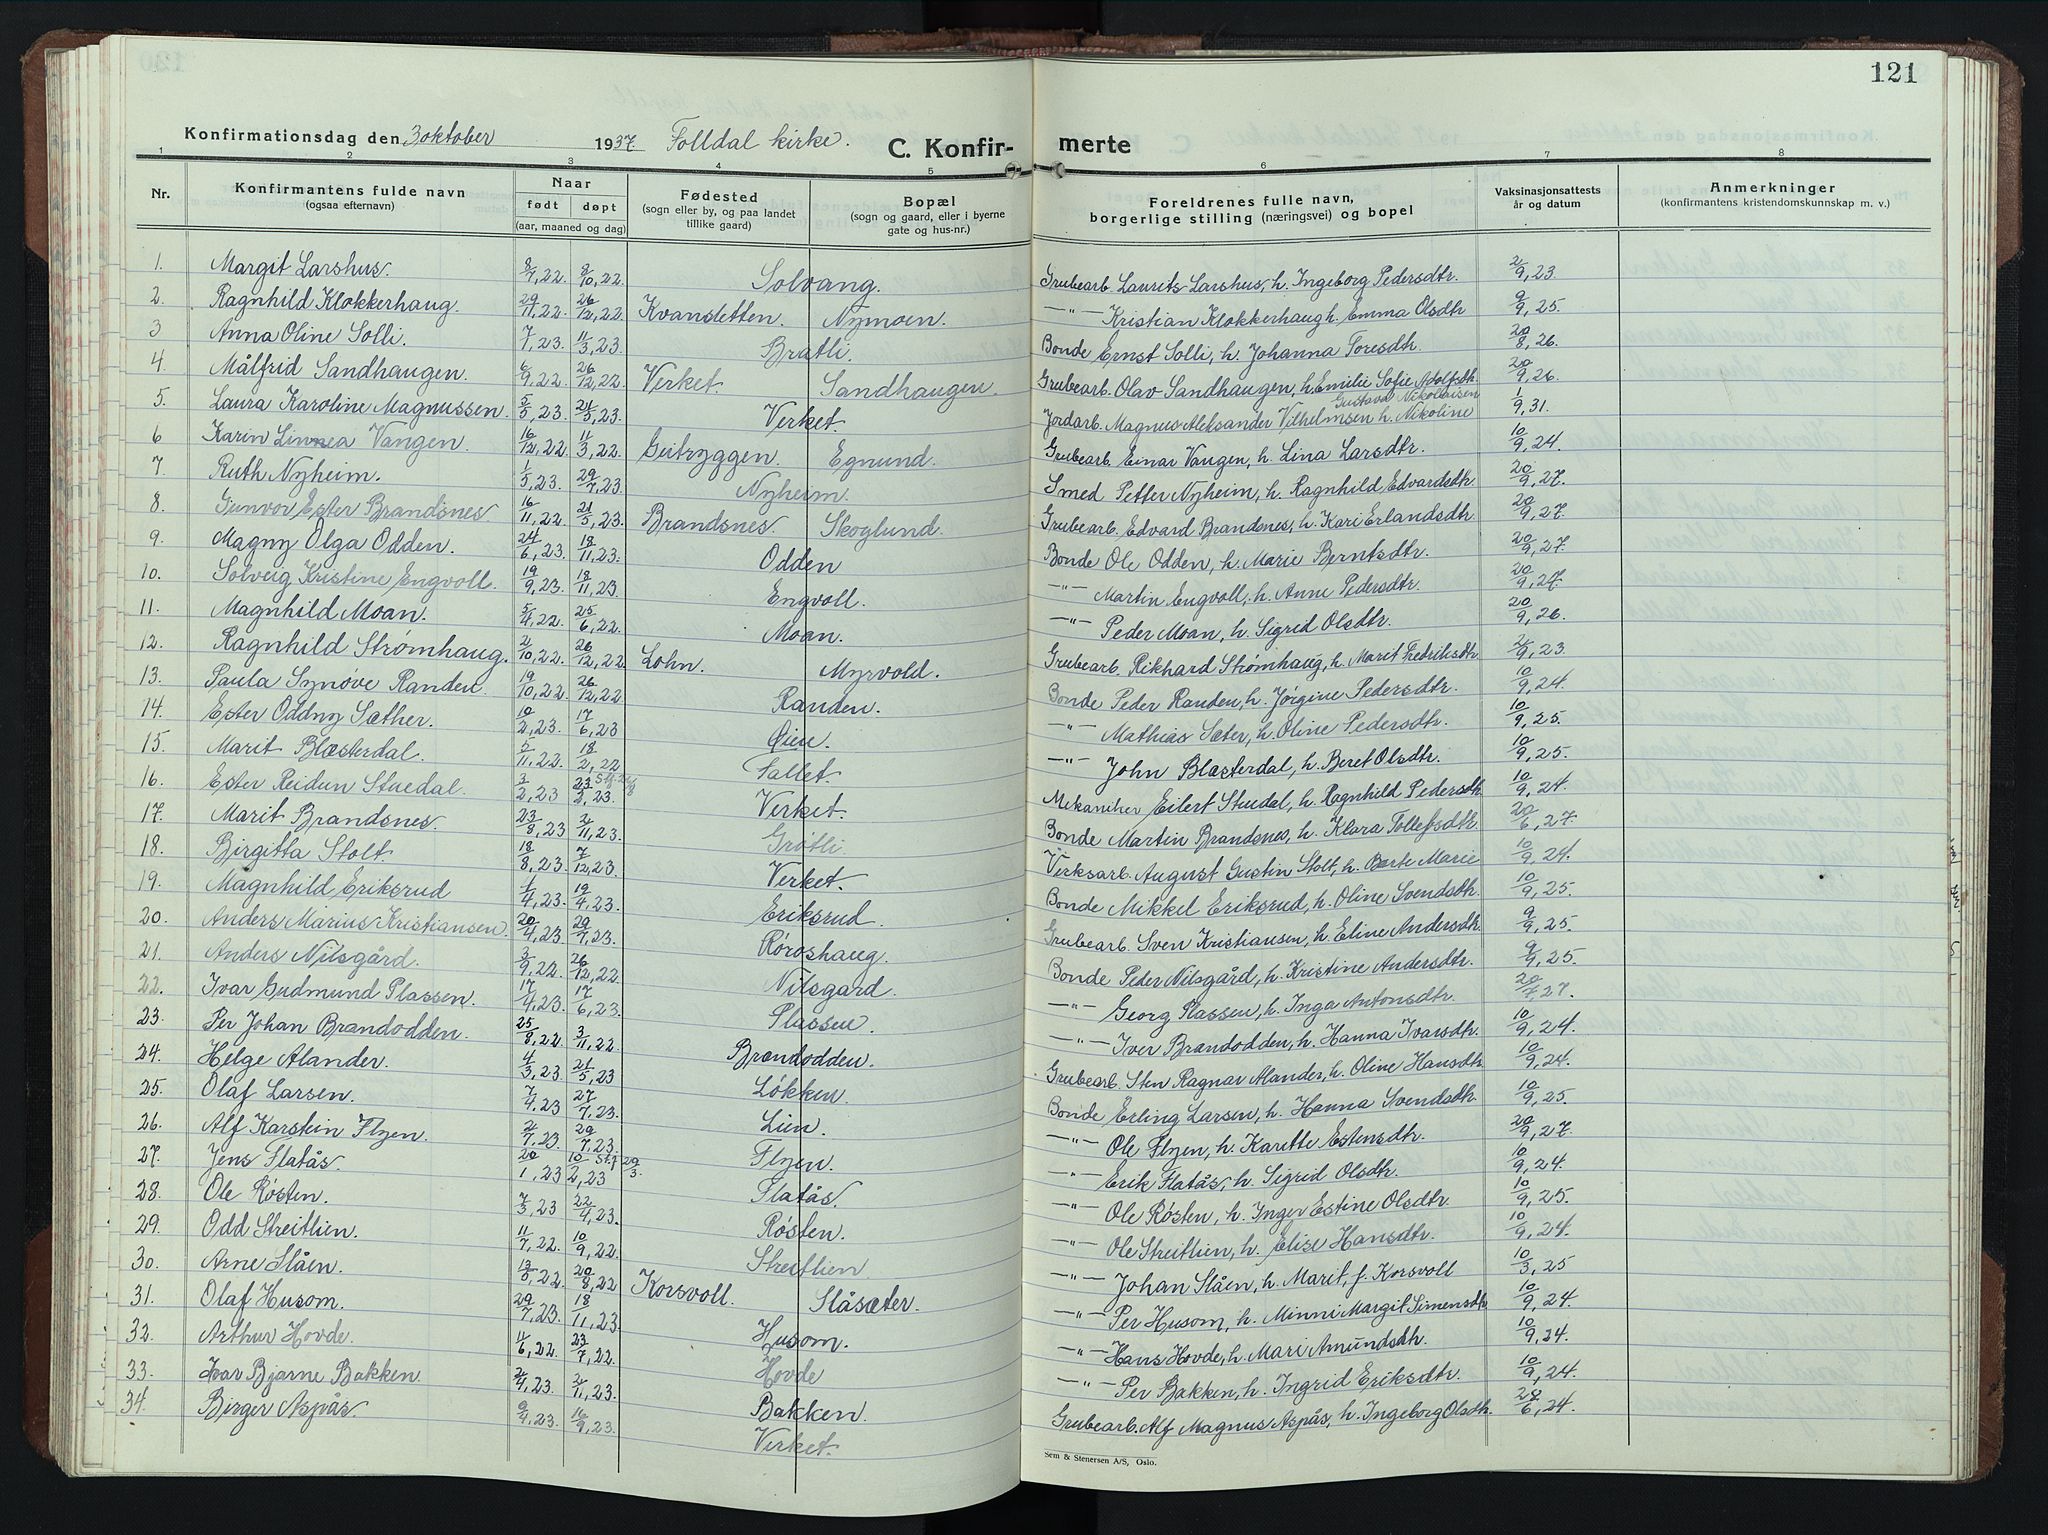 121
Konfirmationsdag den 3 oktober 1937. Folldal kirke. C. Konfirmerte
1 2 3 4 5 6 7 8
Nr. Konfirmantens fulde navn (ogsaa efternavn) Naar født døpt (aar, maaned og dag) Fødested (sogn eller by, og paa landet tillike gaard) Bopæl (sogn og gaard, eller i byerne gate og hus-nr.) Foreldrenes fulle navn, borgerlige stilling (næringsvei) og bopel Vaksinasjonsattests år og datum Anmerkninger (konfirmantens kristendomskunnskap m. v.)
1. Margit Larshus. 8/7, 22. 8/10, 22. Solvang. Grubearb. Laurits Larshus, h. Ingeborg Pedersdtr. 2/9, 23.
2. Ragnhild Klokkerhaug. 29/11, 22. 26/12, 22. Kvansletten. Nymoen. —"— Kristian Klokkerhaug h. Emma Olsdtr 9/9, 25.
3 Anna Oline Solli. 7/7, 23. 11/3, 23. Bratli. Bonde Ernst Solli, h. Johanna Toresdtr. 20/8, 26.
4. Målfrid Sandhaugen. 6/9, 22. 26/12, 22. Verket. Sandhaugen. Grubearb. Olav Sandhaugen, h. Emilie Sofie Adolfsdtr. 20/9, 26.
5. Laura Karoline Magnussen. 5/5, 23. 21/5, 23. Verket. Jordarb. Magnus Aleksander Vilhelmsen h. Nikoline Gustava Nikolaisen 1/9, 31.
6 Karin Linnea Vangen. 16/12, 22. 11/3, 22. Geitryggen. Egnund. Grubearb. Einar Vangen, h. Lina Larsdtr. 10/9, 24.
7. Ruth Nyheim. 1/5, 23. 29/7, 23. Nyheim. Smed Petter Nyheim, h. Ragnhild Edvardsdtr. 20/9, 27.
8. Gunvor Ester Brandsnes 16/11, 22. 21/5, 23. Brandsnes Skoglund. Grubearb. Edvard Brandsnes, h. Kari Erlandsdtr. 20/9, 27.
9. Magny Olga Odden. 24/6, 23. 18/11, 23. Odden Bonde Ole Odden, h. Marie Berntsdtr. 20/9, 27.
10. Solveig Kristine Engvoll. 19/9, 23. 18/11, 23. Engvoll. —"— Martin Engvoll, h. Anne Pedersdtr. 20/9, 27.
11. Magnhild Moan. 5/4, 22. 25/6, 22. Moan. —"— Peder Moan, h. Sigrid Olsdtr. 20/9, 26.
12. Ragnhild Strømhaug. 2/10, 22. 26/12, 22. Lohn. Myrvold. Grubearb. Rikhard Strømhaug, h. Marit Fredriksdtr. 2/9, 23.
13. Paula Synøve Randen. 19/10, 22. 26/12, 22 Randen. Bonde Peder Randen, h. Jørgine Pedersdtr. 10/9, 24.
14. Ester Oddny Sæther. 10/2, 23. 17/6, 23 Øien. —"— Mathias Sæter, h. Oline Pedersdtr. 10/9, 25.
15. Marit Blæsterdal. 5/11, 22. 18/2, 22 Fallet. —"— John Blæsterdal, h. Beret Olsdtr. 10/9, 25.
16. Ester Reidun Stuedal. 3/2, 23 23/3, 23. Verket. Mekaniker Eilert Stuedal, h. Ragnhild Pedersdtr. 10/9, 24.
17. Marit Brandsnes. 23/8, 23 2/11, 23. Grøtli Bonde Martin Brandsnes, h. Klara Tollefsdtr. 20/6, 27.
18. Birgitta Stolt. 18/8, 23. 7/12, 23. Verket. Verksarb. August Gustin Stolt, h. Berte Marie 10/9, 24.
19. Magnhild Eriksrud 1/4, 23. 19/4, 23. Eriksrud. Bonde Mikkel Eriksrud, h. Oline Svendsdtr. 10/9, 25.
20. Anders Marius Kristiansen. 20/4, 23. 29/7, 23. Røroshaug. Grubearb. Sven Kristiansen, h. Eline Andersdtr. 9/9, 25.
21. Anders Nilsgård. 3/9, 22. 26/12, 22. Nilsgard. Bonde Peder Nilsgård, h. Kristine Andersdtr. 9/9, 25.
22. Ivar Gudmund Plassen. 17/4, 23. 17/6, 23. Plassen. —"— Georg Plassen, h. Inga Antonsdtr. 20/7, 27.
23. Per Johan Brandodden. 25/8, 22. 3/11, 22. Brandodden. —"— Iver Brandodden, h. Hanna Ivarsdtr. 10/9, 24.
24. Helge Alander. 4/3, 23. 21/5, 23 Løkken. Grubearb. Sten Ragnar Alander, h. Oline Hansdtr. 10/9, 24.
25. Olaf Larsen. 7/4, 23 27/7, 23. Lien. Bonde Erling Larsen, h. Hanna Svendsdtr. 10/9, 25.
26. Alf Karstein Flyen. 2/7, 23. 29/7, 23. Flyen. —"— Ole Flyen, h. Karette Estensdtr. 20/9, 27.
27. Jens Flatås. 20/1, 23 10/2, 23 Stf 29/3. Flatås. —"— Erik Flatås, h. Sigrid Olsdtr. 10/9, 24.
28. Ole Røsten. 7/3, 23 22/4, 23. Røsten. —"— Ole Røsten, h. Inger Estine Olsdtr. 10/9, 25.
29. Odd Streitlien. 11/7, 22. 10/9, 22. Streitlien —"— Ole Streitlien, h. Elise Hansdtr. 10/9, 24.
30. Arne Slåen. 13/5, 22. 20/8, 22 Korsvoll. Slåsæter. —"— Johan Slåen, h. Marit, f. Korsvoll 10/3, 25
31. Olaf Husom. 29/7, 23. 18/11, 23 Husom. —"— Per Husom, h. Minni Margit Simensdtr. 10/9, 24.
32. Arthur Hovde. 11/6, 22. 23/7, 22. Hovde —"— Hans Hovde, h. Mari Amundsdtr. 10/9, 24.
33. Ivar Bjarne Bakken. 2/4, 23. 2/11, 23. Bakken. —"— Per Bakken, h. Ingrid Eriksdtr. 10/9, 24.
34. Birger Aspås. 9/4, 23. 16/9, 23. Verket. Grubearb. Alf Magnus Aspås, h. Ingeborg Olsdtr. 28/6, 24.
Sem & Stenersen A/S, Oslo.